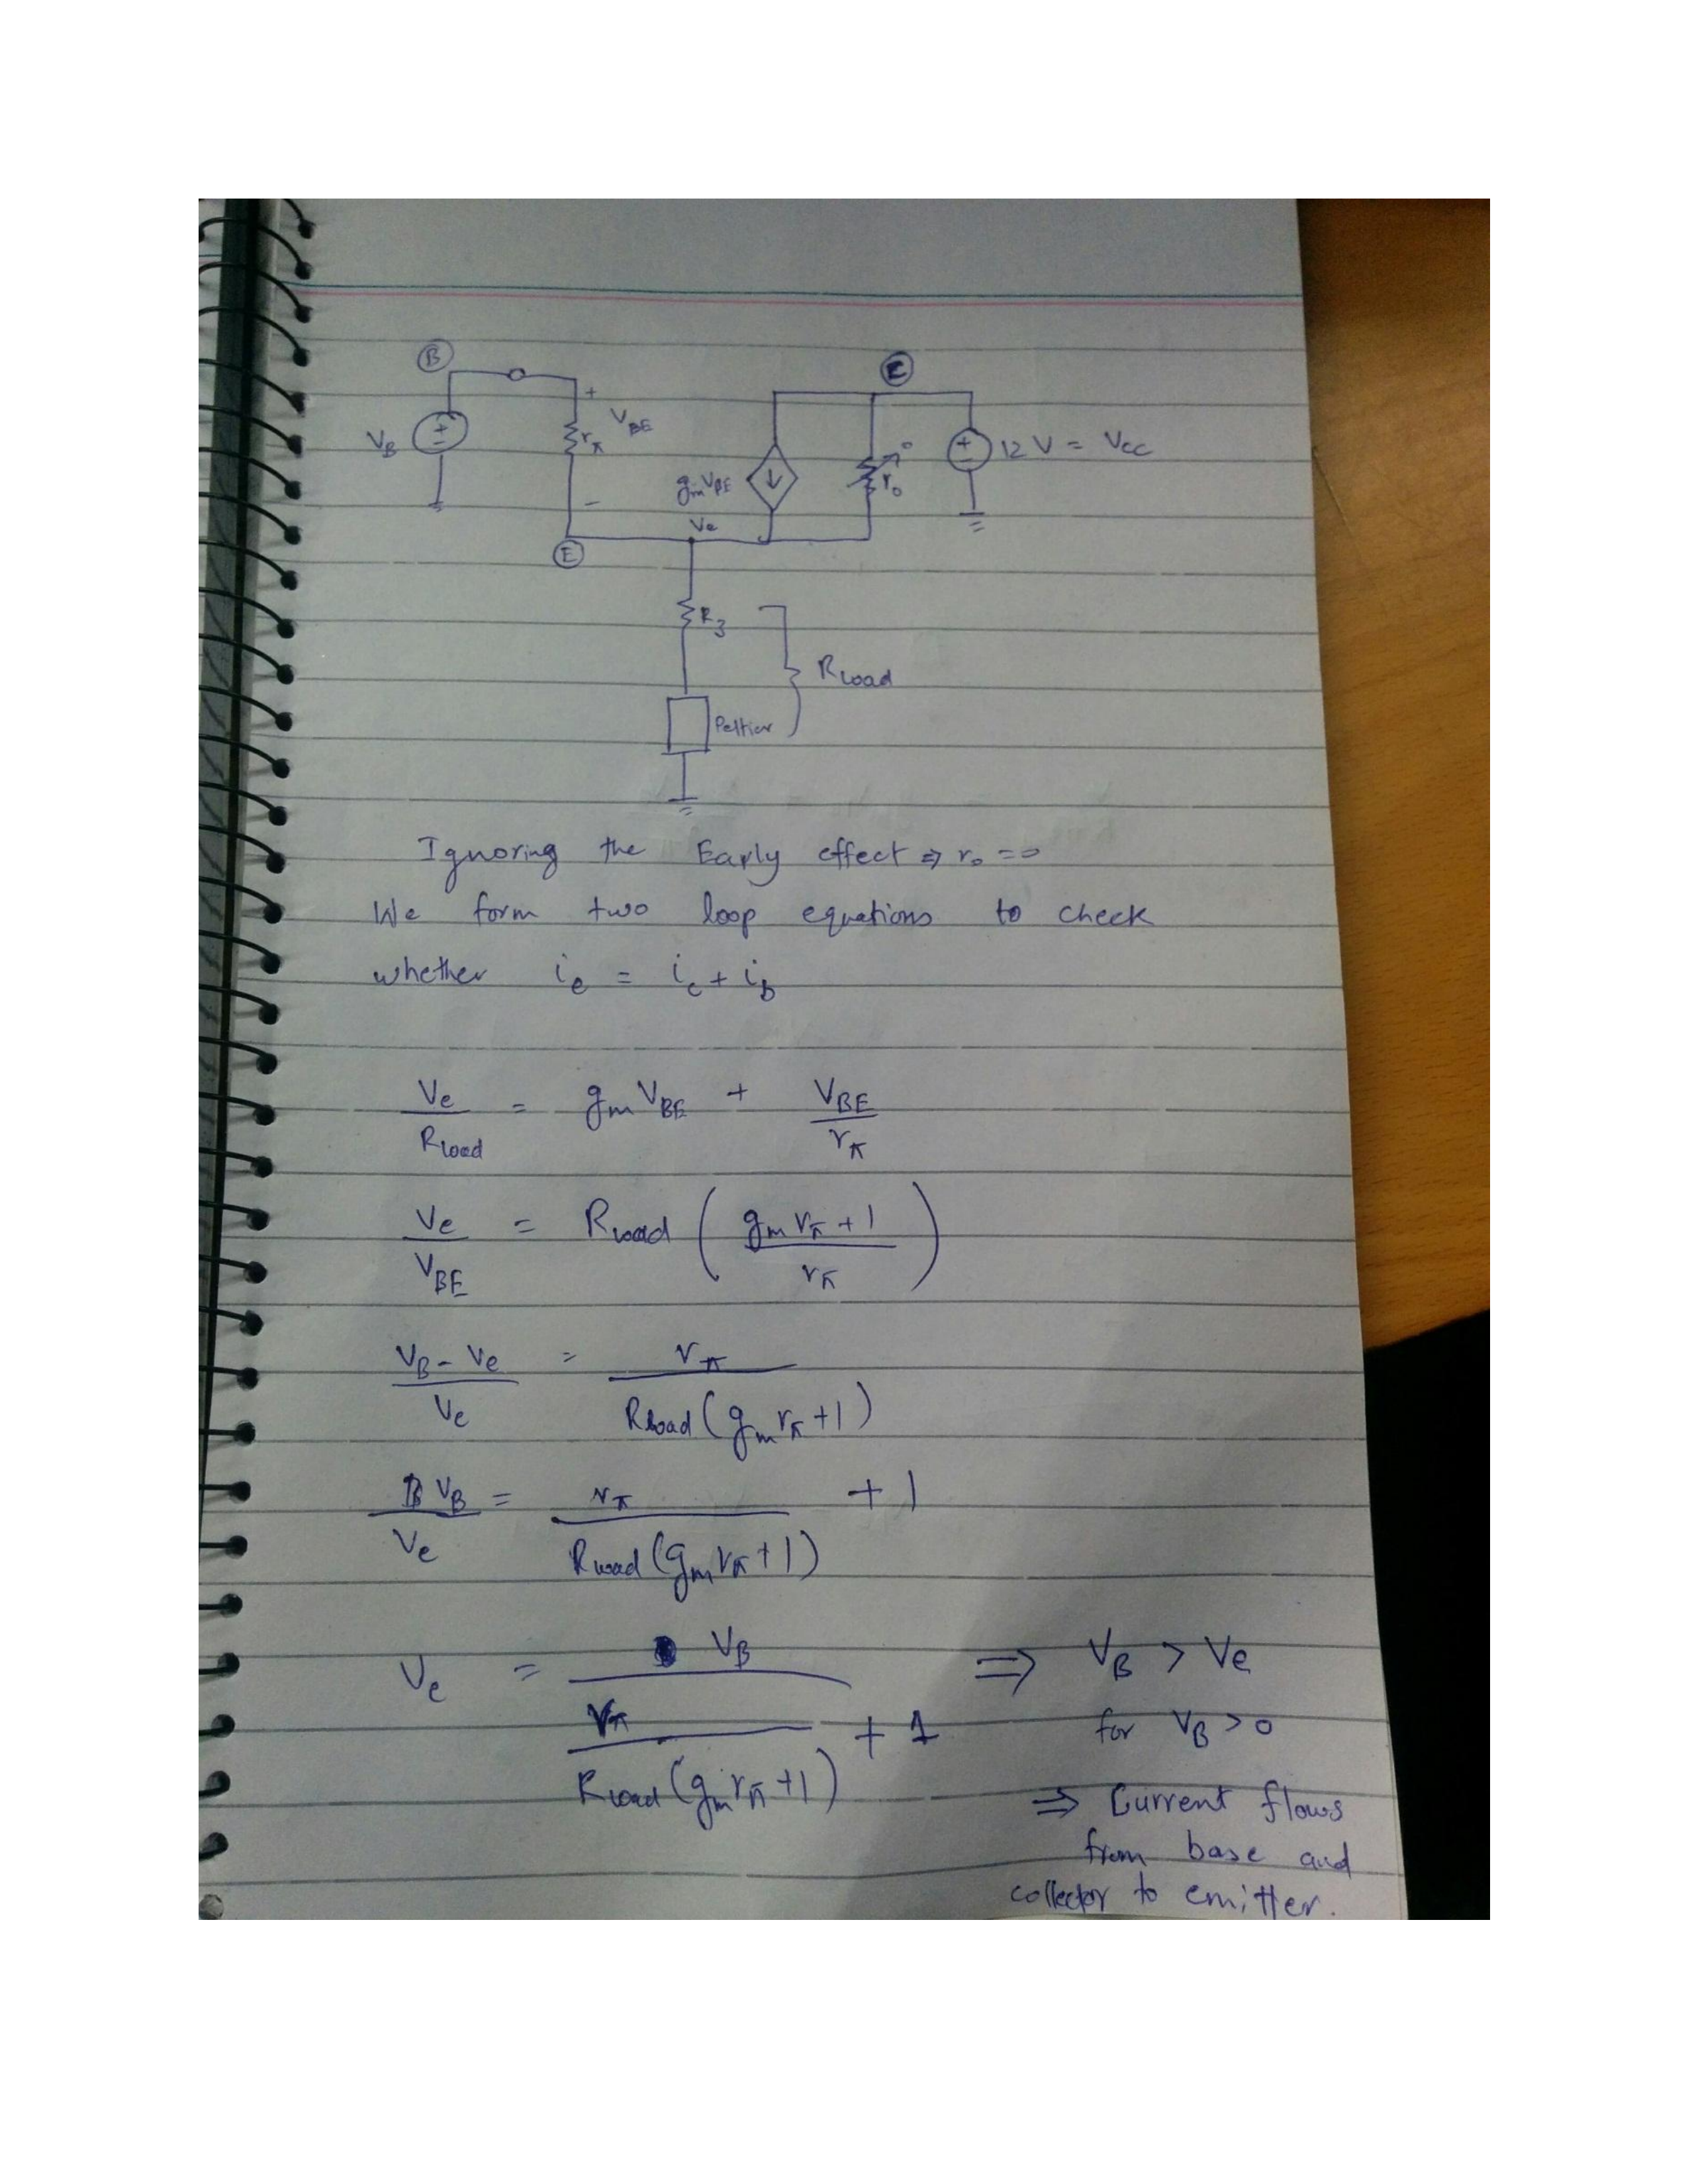 B
C
+
V_BE
V_B
+
-
r_π
g_m V_BE
r_o
+
-
12 V = V_CC
-
V_e
E
R_3
R_Load
Peltier
Ignoring the Early effect ⇒ r_o = ∞
We form two loop equations to check
whether i_e = i_c + i_b
V_e / R_load = g_m V_BE + V_BE / r_π
V_e / V_BE = R_Load ( (g_m r_π + 1) / r_π )
(V_B - V_e) / V_e = r_π / (R_Load (g_m r_π + 1))
V_B / V_e = r_π / (R_Load (g_m r_π + 1)) + 1
V_e = V_B / (r_π / (R_Load (g_m r_π + 1)) + 1) ⇒ V_B > V_e
for V_B > 0
⇒ Current flows
from base and
collector to emitter.